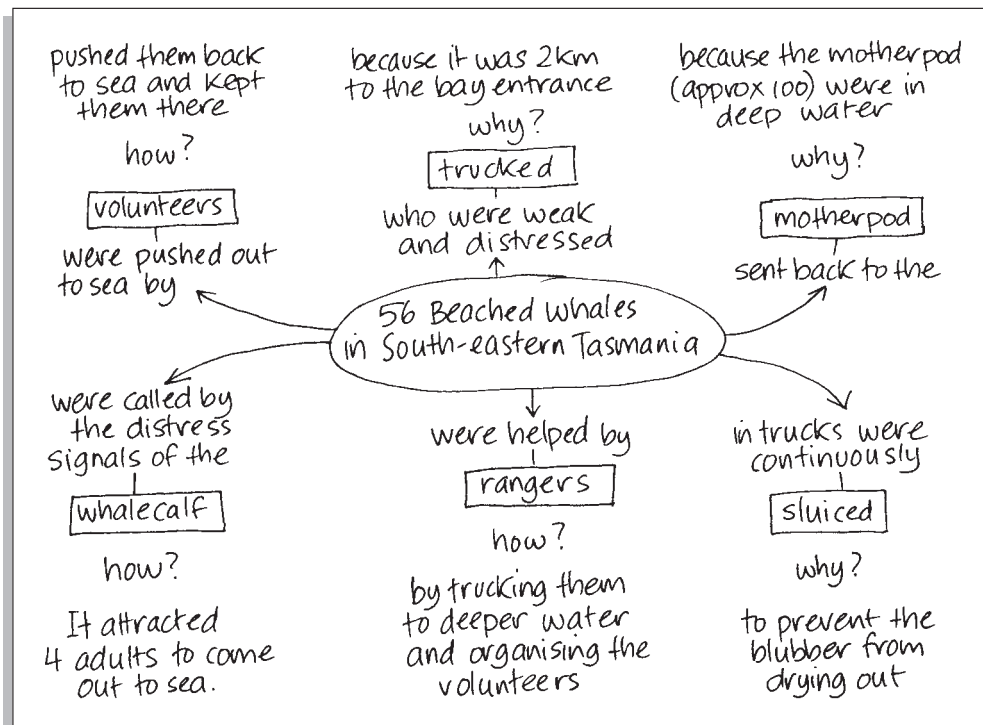 pushed them back
to sea and kept
them there
how?
volunteers
were pushed out
to sea by
because it was 2km
to the bay entrance
why?
trucked
who were weak
and distressed
because the motherpod
(approx 100) were in
deep water
why?
motherpod
sent back to the
56 Beached Whales
in South-eastern Tasmania
were called by
the distress
signals of the
whalecalf
how?
It attracted
4 adults to come
out to sea.
were helped by
rangers
how?
by trucking them
to deeper water
and organising the
volunteers
in trucks were
continuously
sluiced
why?
to prevent the
blubber from
drying out